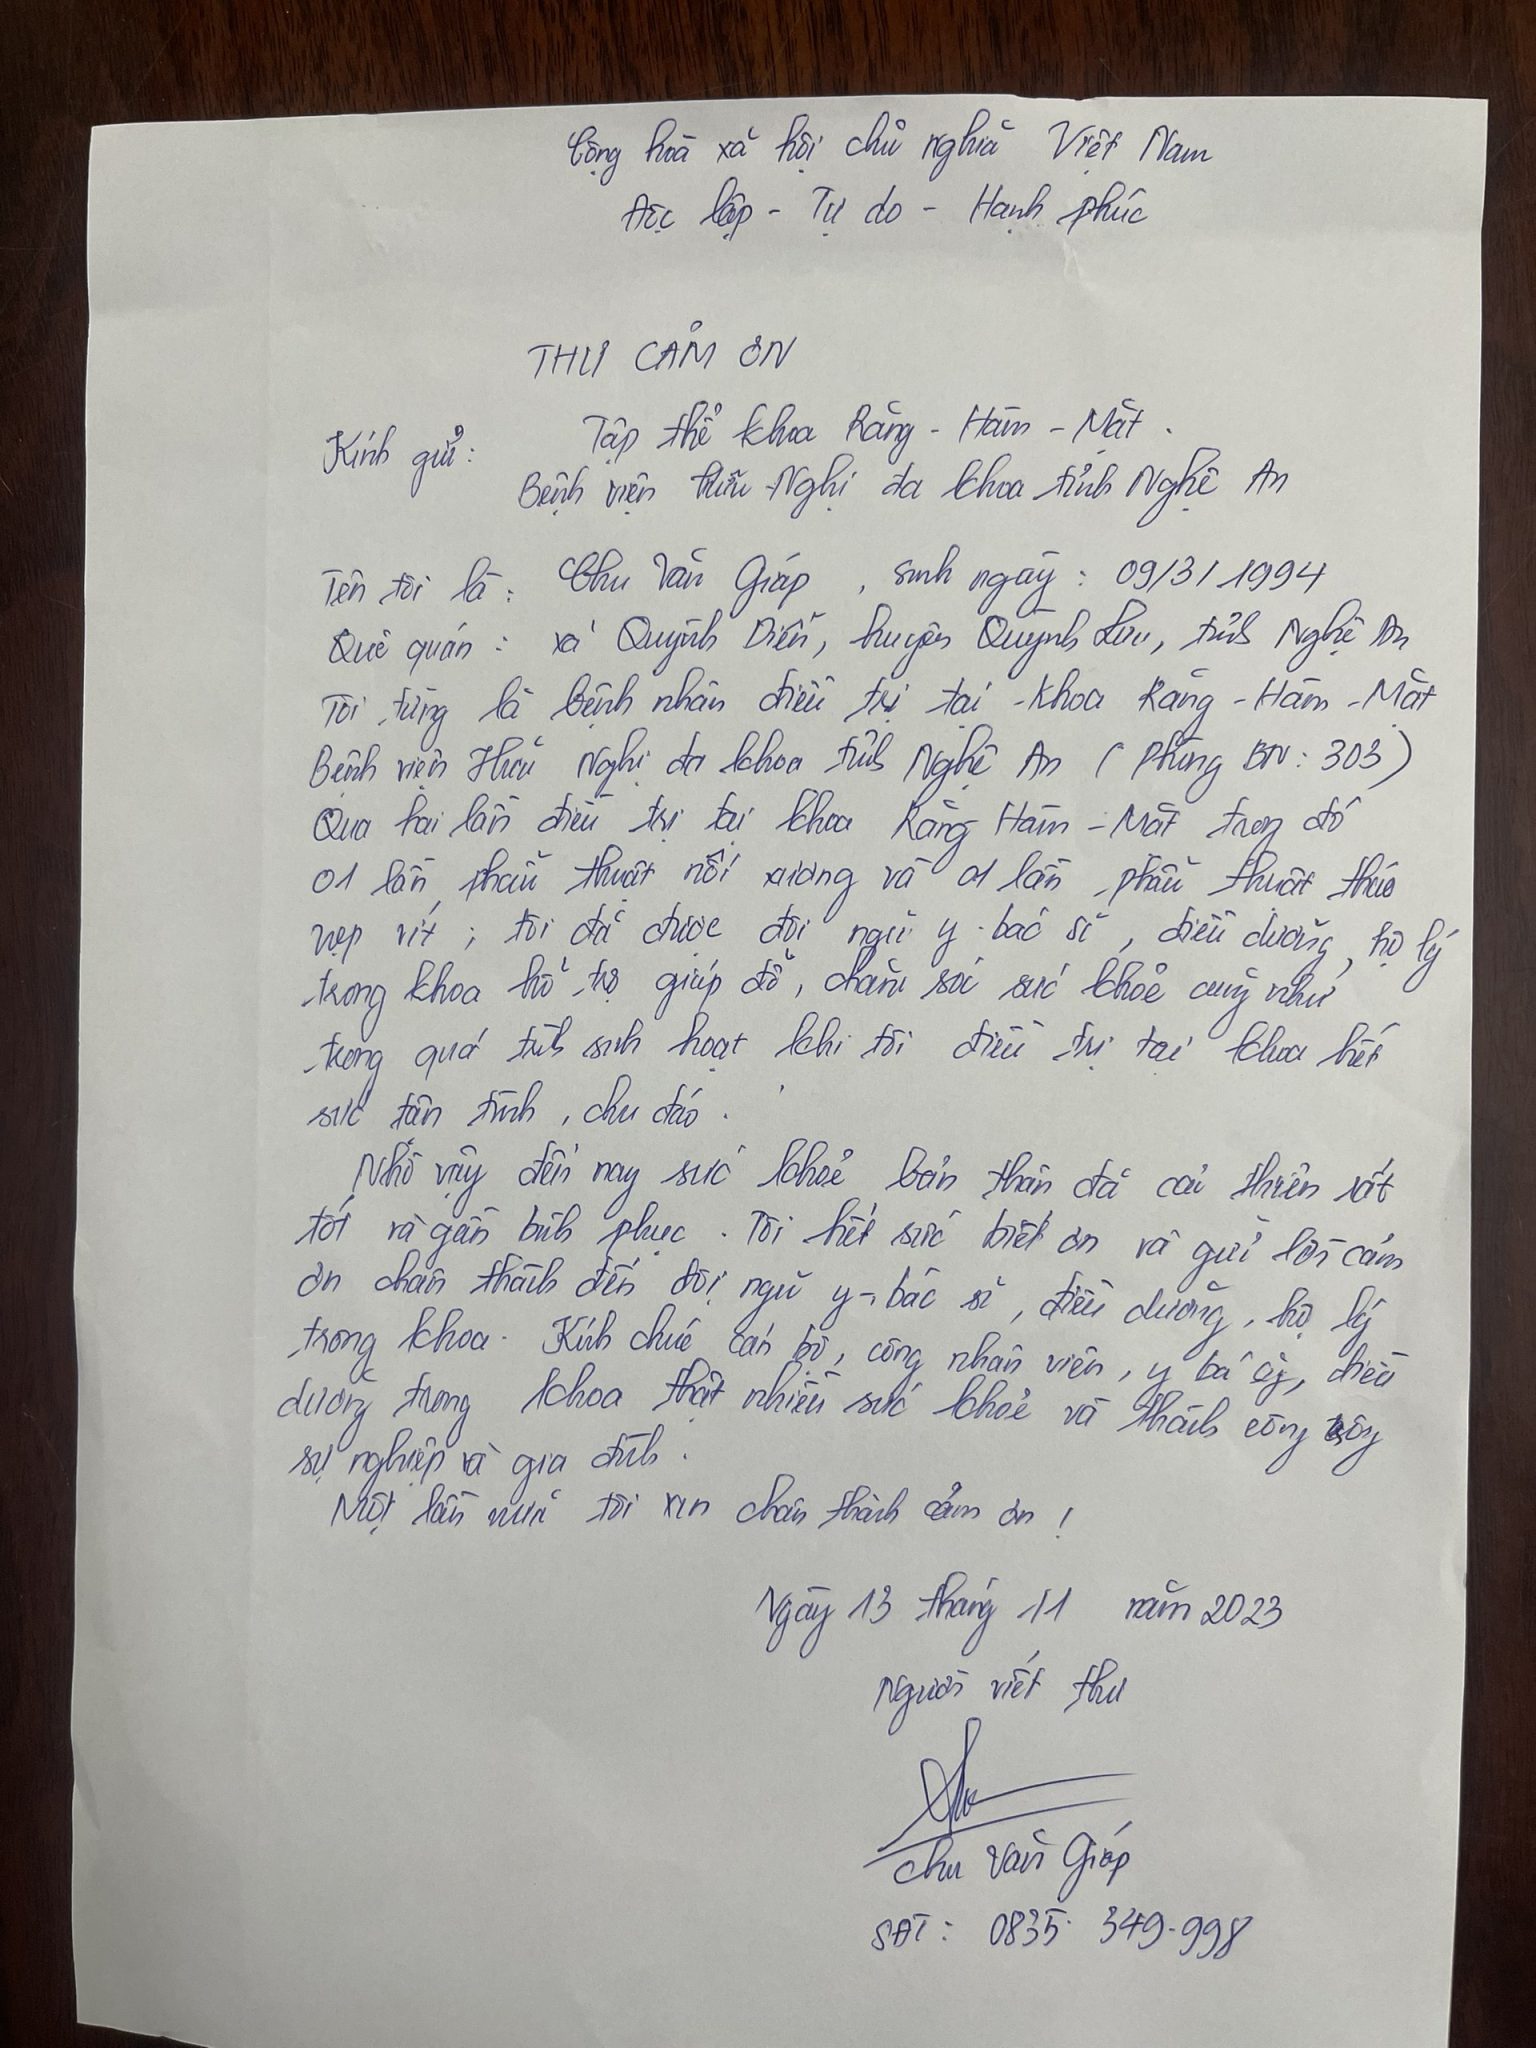 Cộng hoà xã hội chủ nghĩa Việt Nam
Độc lập - Tự do - Hạnh phúc
THƯ CẢM ƠN
Kính gửi: Tập thể khoa Răng - Hàm - Mặt.
Bệnh viện Hữu Nghị đa khoa tỉnh Nghệ An
Tên tôi là: Chu Văn Giáp, sinh ngày: 09/3/1994
Quê quán: xã Quỳnh Diễn, huyện Quỳnh Lưu, tỉnh Nghệ An
Tôi từng là bệnh nhân điều trị tại khoa Răng - Hàm - Mặt
Bệnh viện Hữu Nghị đa khoa tỉnh Nghệ An (Phòng BN: 303)
Qua hai lần điều trị tại khoa Răng Hàm - Mặt trong đó
01 lần phẫu thuật nối xương và 01 lần phẫu thuật tháo
nẹp vít; tôi đã được đội ngũ y bác sĩ, điều dưỡng, hộ lý
trong khoa hỗ trợ giúp đỡ, chăm sóc sức khoẻ cũng như
trong quá trình sinh hoạt khi tôi điều trị tại khoa hết
sức tận tình, chu đáo.
Nhờ vậy đến nay sức khoẻ bản thân đã cải thiện rất
tốt và gần bình phục. Tôi hết sức biết ơn và gửi lời cảm
ơn chân thành đến đội ngũ y - bác sĩ, điều dưỡng, hộ lý
trong khoa. Kính chúc cán bộ, công nhân viên, y bá sỹ, điều
dưỡng trong khoa thật nhiều sức khoẻ và thành công trong
sự nghiệp và gia đình.
Một lần nữa tôi xin chân thành cảm ơn!
Ngày 13 tháng 11 năm 2023
Người viết thư
Chu Văn Giáp
SĐT: 0835 349.998